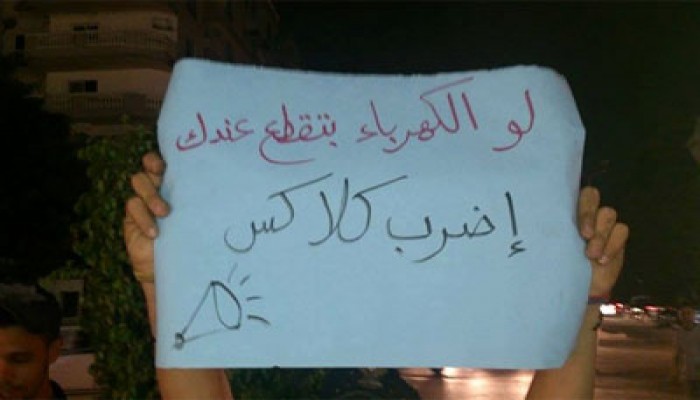 لو الكهرباء بتقطع عندك
إضرب كلاكس